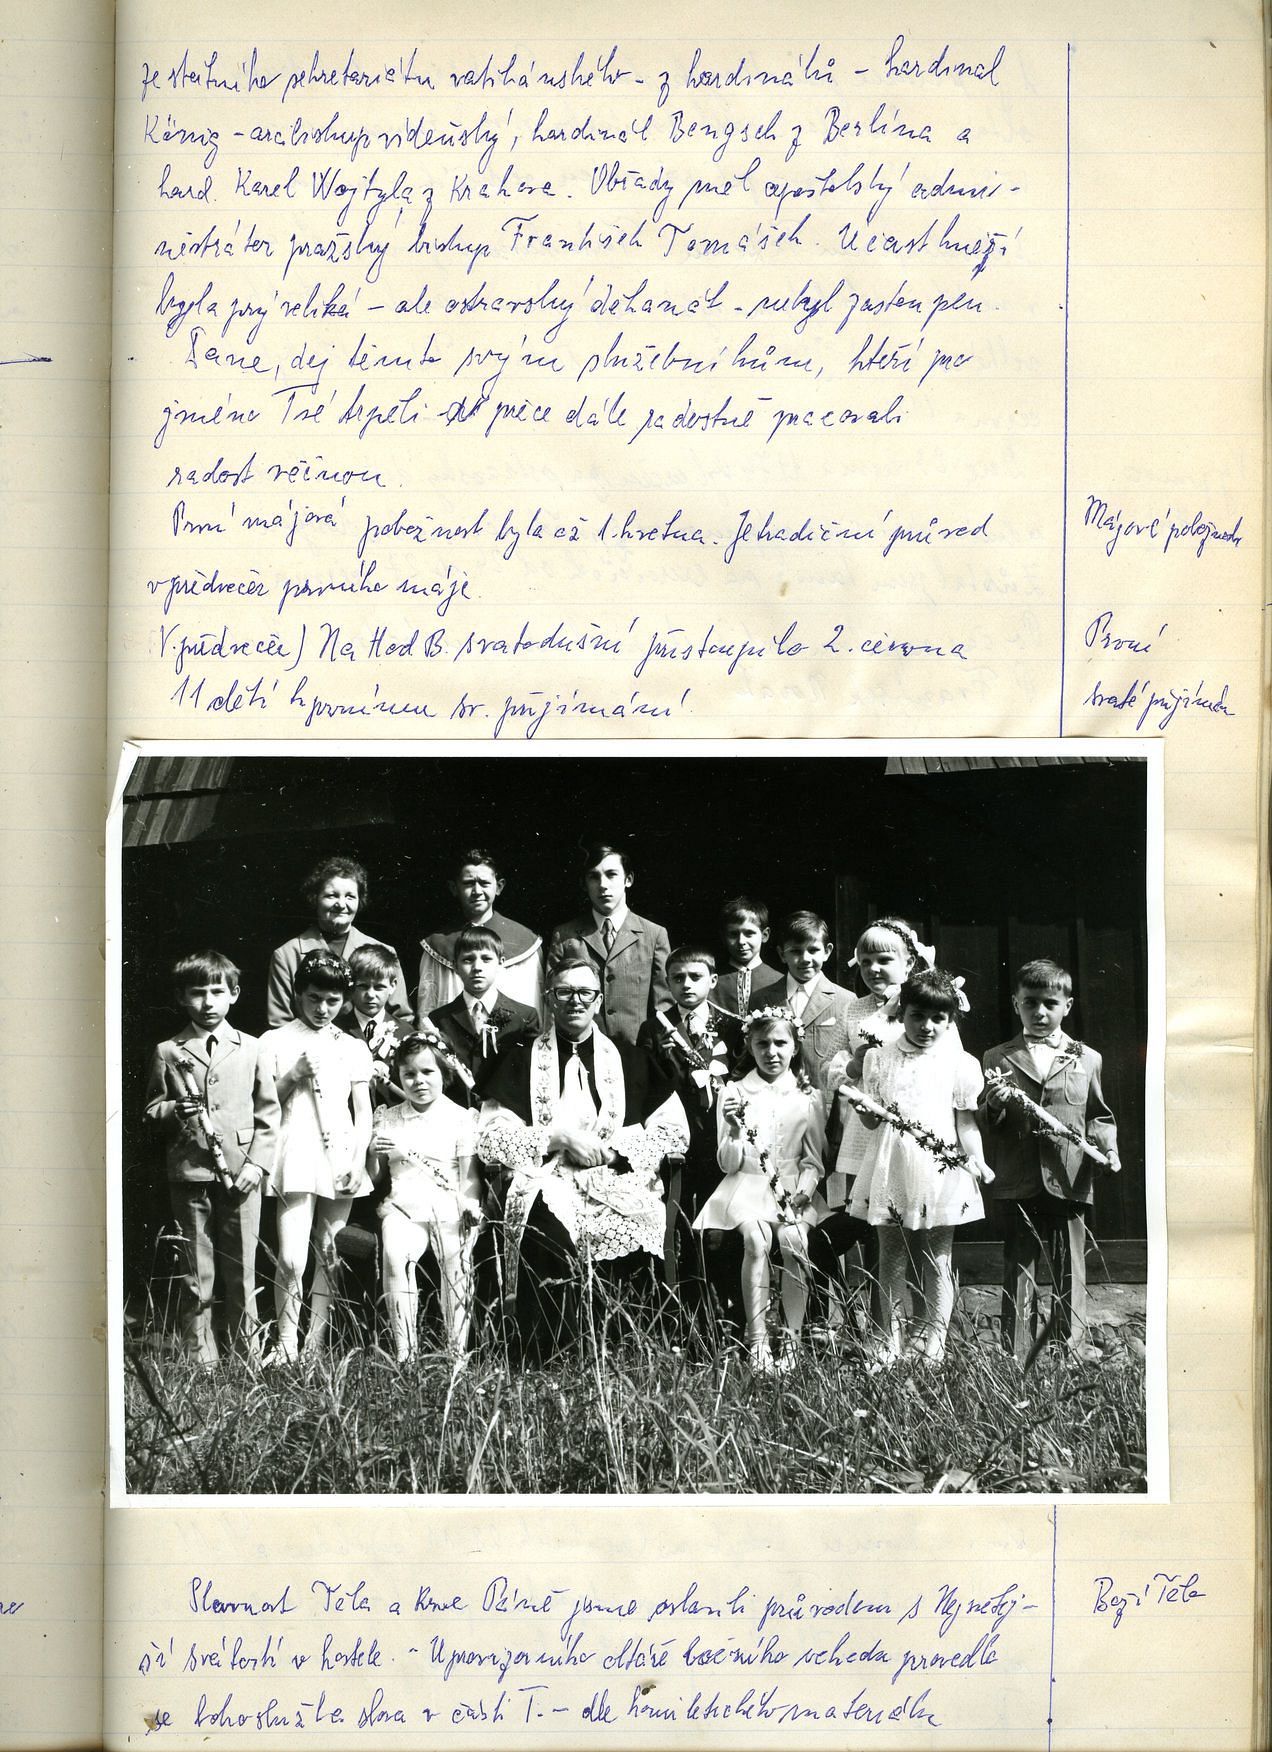 ze státního sekretariátu vatikánského - z kardinálů - kardinal
König - arcibiskup vídeňský, kardinál Bengsch z Berlína a
kard. Karel Wojtyla z Krakova. Obřady měl apoštolský admi-
nistrátor pražský biskup František Tomášek. Účast kněží
byla prý veliká - ale ostravský děkanát - nebyl zastoupen.
Pane, dej těmto svým služebníkům, kteří pro
jméno Tvé trpěli práce dále radostně pracovali
radost věčnou.
První májová pobožnost byla až 1. května. Je tradiční průvod
Májové pobožnosti
v předvečer prvního máje.
V předvečer) Na Hod B. svatodušní přistoupilo 2. června
První
11 dětí k prvnímu sv. přijímání.
svaté přijímán
Slavnost Těla a Krve Páně jsme oslavili průvodem s Nejsvětěj-
Boží Tělo
ší svátostí v kostele. - U provizorního oltáře bočního vchodu provedla
se bohoslužba slova v části T. - dle homiletického materiálu